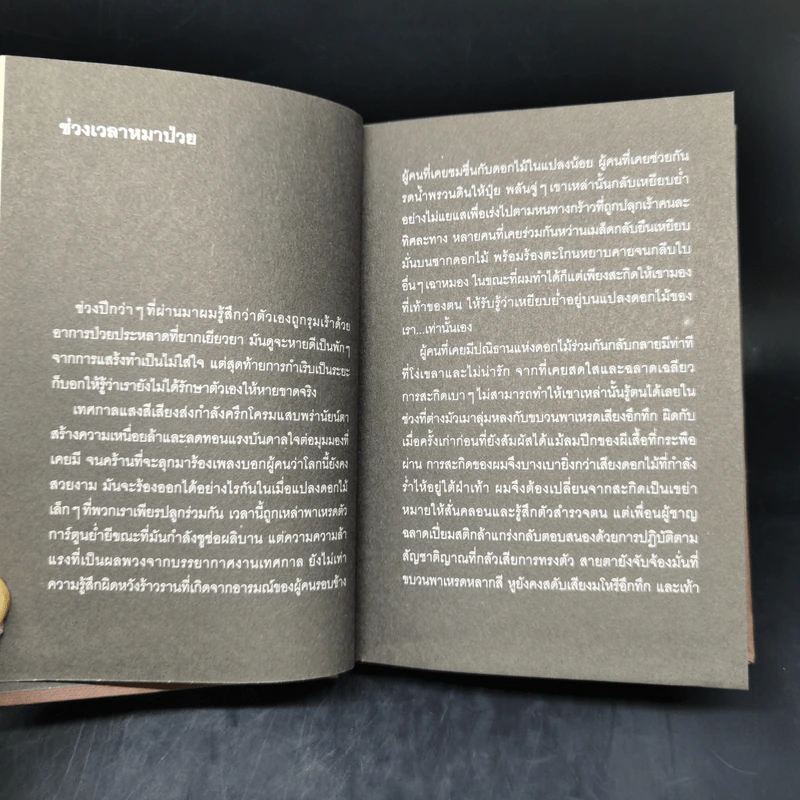 ช่วงเวลาหมาป่วย
ช่วงปีกว่าๆ ที่ผ่านมาผมรู้สึกว่าตัวเองถูกรุมเร้าด้วย
อาการป่วยประหลาดที่ยากเยียวยา มันดูจะหายดีเป็นพักๆ
จากการแสร้งทำเป็นไม่ใส่ใจ แต่สุดท้ายการกำเริบเป็นระยะ
ก็บอกให้รู้ว่าเรายังไม่ได้รักษาตัวเองให้หายขาดจริง
เทศกาลแสงสีเสียงส่งกำลังครึกโครมแสบพร่านัยน์ตา
สร้างความเหนื่อยล้าและลดทอนแรงบันดาลใจต่อมุมมองที่
เคยมี จนคร้านที่จะลุกมาร้องเพลงบอกผู้คนว่าโลกนี้ยังคง
สวยงาม มันจะร้องออกได้อย่างไรกันในเมื่อแปลงดอกไม้
เล็กๆ ที่พวกเราเพียรปลูกร่วมกัน เวลานี้ถูกเหล่าพาเหรด
การ์ตูนย่ำยีขณะที่มันกำลังชูช่อผลิบาน แต่ความความล้า
แรงที่เป็นผลพวงจากบรรยากาศงานเทศกาล ยังไม่เท่า
ความรู้สึกผิดหวังร้าวรานที่เกิดจากอารมณ์ของผู้คนรอบข้าง
ผู้คนที่เคยชมชื่นกับดอกไม้ในแปลงน้อย ผู้คนที่เคยช่วยกัน
รดน้ำพรวนดินให้ปุ๋ย พลันจู่ๆ เขาเหล่านั้นกลับเหยียบย่ำ
อย่างไม่แยแสเพื่อเร่งไปตามหนทางกร้าวที่ถูกปลุกเร้าคนละ
ทิศละทาง หลายคนที่เคยร่วมกันหว่านเมล็ดกลับยืนเหยียบ
มั่นบนซากดอกไม้ พร้อมร้องตะโกนหยาบคายจนกลีบใบ
อื่นๆ เฉาหมอง ในขณะที่ผมทำได้ก็แต่เพียงสะกิดให้เขามอง
ที่เท้าของตน ให้รับรู้ว่าเหยียบย่ำอยู่บนแปลงดอกไม้ของ
เรา...เท่านั้นเอง
ผู้คนที่เคยมีปณิธานแห่งดอกไม้ร่วมกันกลับกลายมีท่าที
ที่โง่เขลาและไม่น่ารัก จากที่เคยสดใสและฉลาดเฉลียว
การสะกิดเบาๆ ไม่สามารถทำให้เขาเหล่านั้นรู้ตนได้เลยใน
ช่วงที่ต่างมัวเมาลุ่มหลงกับขบวนพาเหรดเสียงอึกทึก ผิดกับ
เมื่อครั้งเก่าก่อนที่ยังสัมผัสได้แม้ลมปีกของผีเสื้อที่กระพือ
ผ่าน การสะกิดของผมจึงบางเบายิ่งกว่าเสียงดอกไม้ที่กำลัง
ร่ำไห้อยู่ใต้ฝ่าเท้า ผมจึงต้องเปลี่ยนจากสะกิดเป็นเขย่า
หมายให้สั่นคลอนและรู้สึกตัวสำรวจตน แต่เพื่อนผู้ชาญ
ฉลาดเปี่ยมสติกล้าแกร่งกลับตอบสนองด้วยการปฏิบัติตาม
สัญชาติญาณที่กลัวเสียการทรงตัว สายตายังจับจ้องมั่นที่
ขบวนพาเหรดหลากสี หูยังคงสดับเสียงมโหรีอึกทึก และเท้า